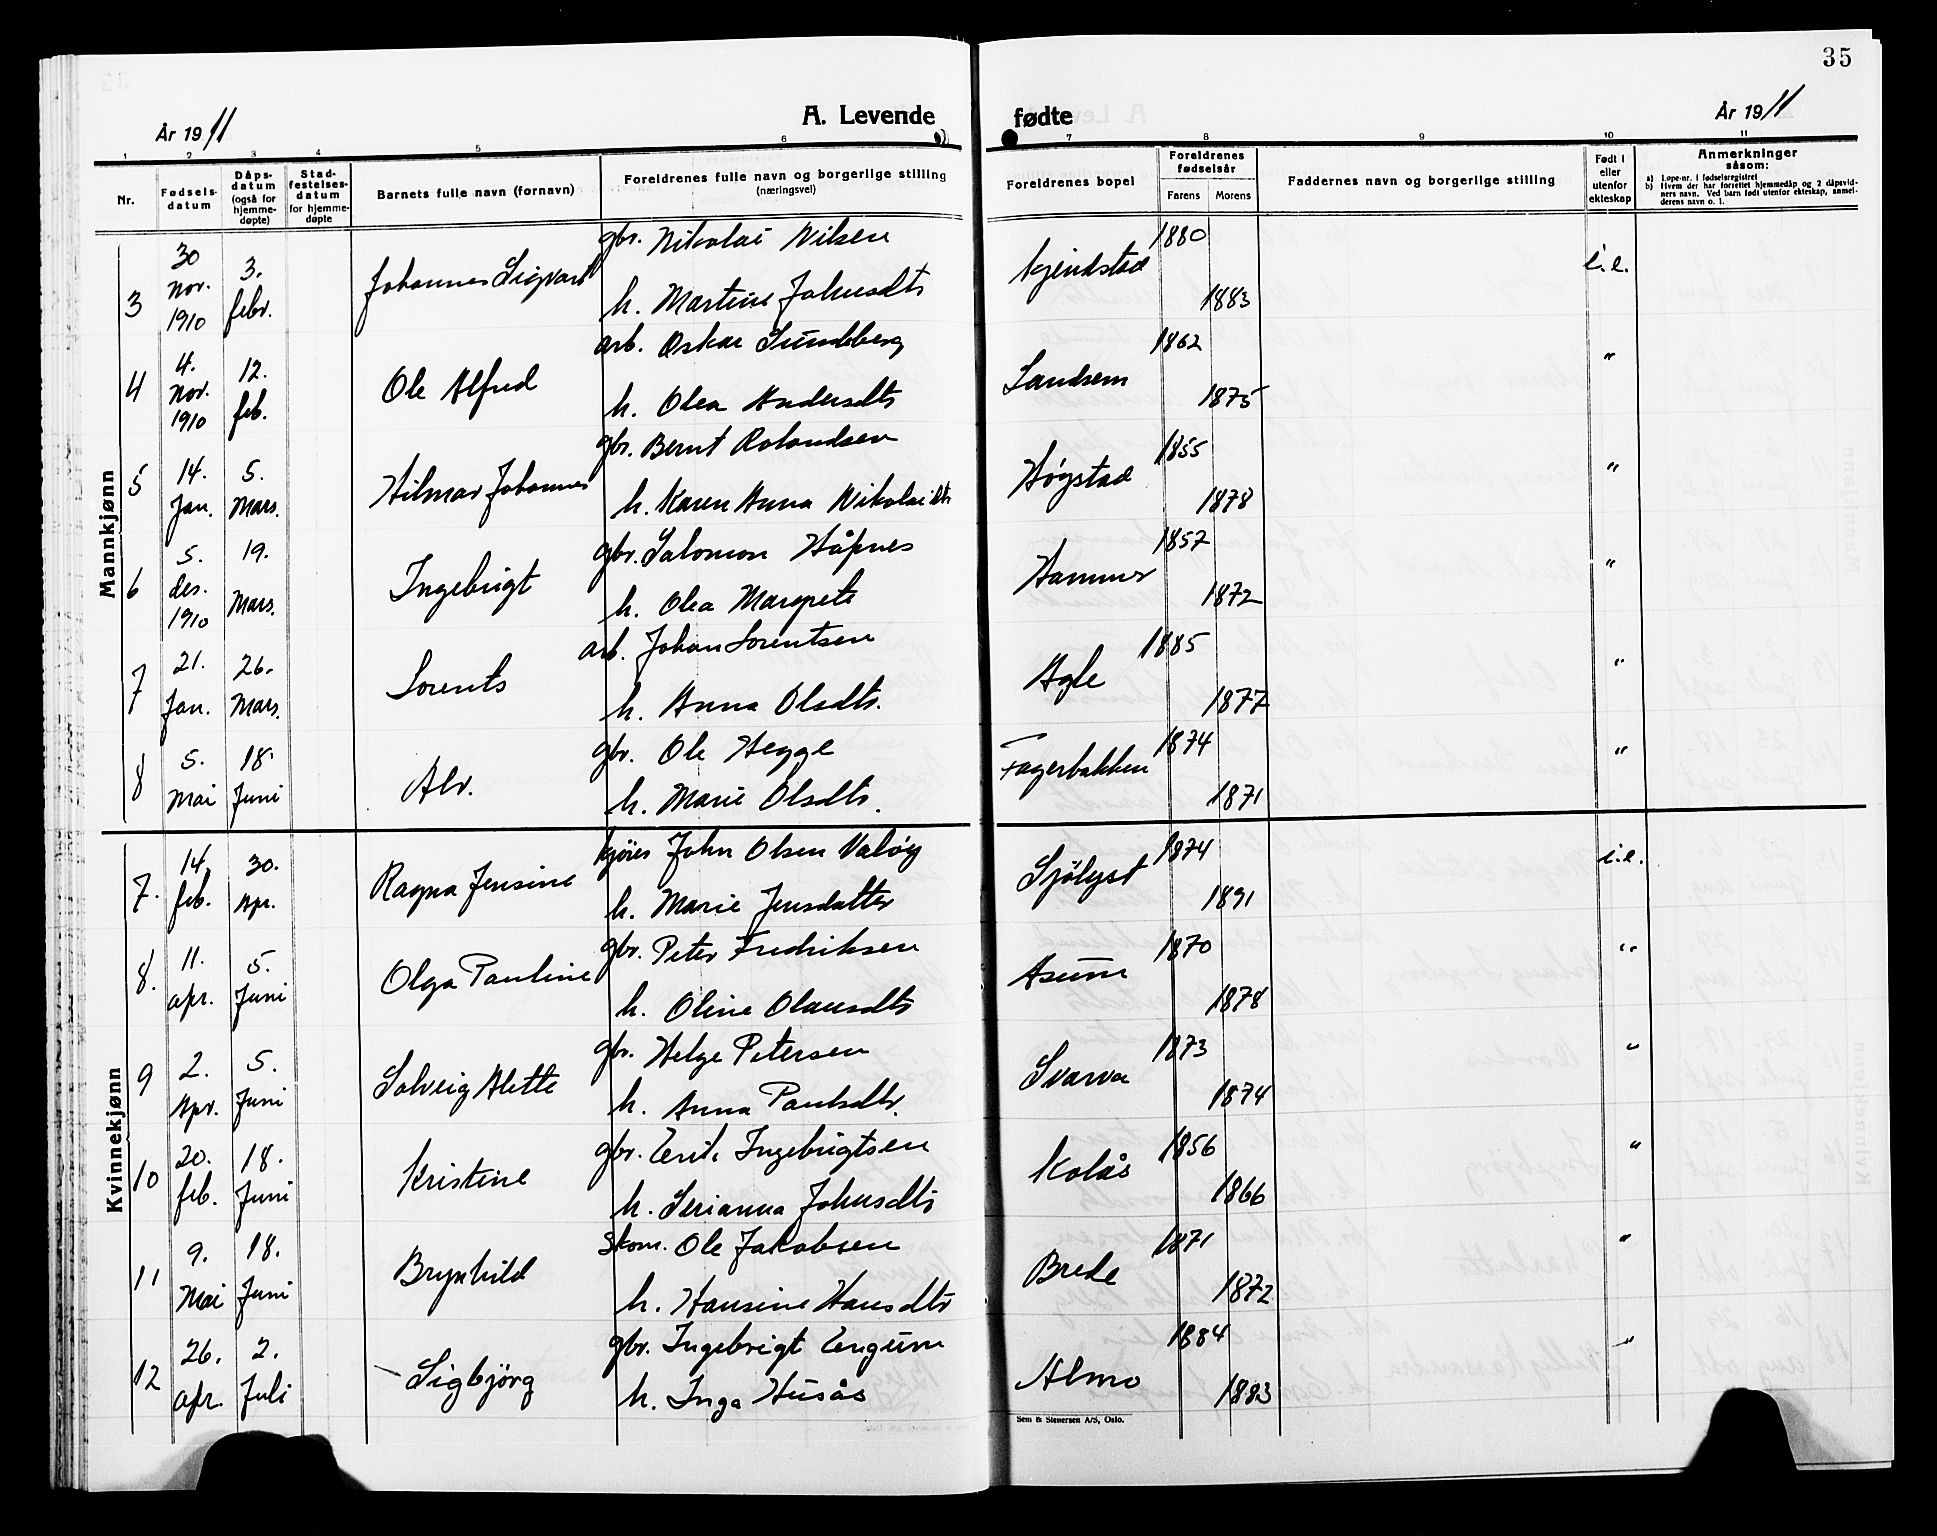 35
År 1911
A. Levende fødte
År 1911
1 2 3 4 5 6 7 8 9 10 11
Nr.
Fødsels-
datum
Dåps-
datum
(også for
hjemme-
døpte)
Stad-
festelses-
datum
for hjemme-
døpte
Barnets fulle navn (fornavn)
Foreldrenes fulle navn og borgerlige stilling
(næringsvei)
Foreldrenes bopel
Foreldrenes
fødselsår
Farens Morens
Faddernes navn og borgerlige stilling
Født i
eller
utenfor
ekteskap
Anmerkninger
såsom:
a) Løpe-nr. i fødselsregistret
b) Hvem der har forrettet hjemmedåp og 2 dåpsvid-
ners navn. Ved barn født utenfor ekteskap, anmel-
derens navn o. l.
Mannkjønn
3 30 nov. 1910 3. febr. Johannes Sigvart gbr. Nikolai Nilsen Kjenstad 1880 i.e.
h. Martine Johnsdtr 1883
4 4. nov. 1910 12. feb. Ole Alfred arb. Oskar Sundberg Landsem 1862 "
h. Olea Andersdtr 1875
5 14. Jan. 5. Mars. Hilmar Johannes gbr. Bernt Rolandsen Høgstad 1855 "
h. Karen Anna Nikolaidtr 1878
6 5. des. 1910 19. Mars. Ingebrigt gbr. Salomon Håpnes Hammer 1857 "
h. Olea Margrete 1872
7 21. Jan. 26. Mars. Lorents arb. Johan Lorentsen Agle 1885 "
h. Anna Olsdtr. 1877
8 5. Mai 18. Juni Alv. gbr. Ole Hegge Fagerbakken 1874 "
h. Marie Olsdtr. 1871
Kvinnekjønn
7. 14. feb. 30. Apr. Ragna Jensine kjører John Olsen Valøy Sjölyst 1874 i.e.
h. Marie Jensdatter 1891
8. 11. apr. 5. Juni Olga Pauline gbr. Peter Fredriksen Asum 1870 "
h. Oline Olausdtr 1878
9 2. Apr. 5. Juni Solveig Alette gbr. Helge Petersen Svarva 1873 "
h. Anna Paulsdtr. 1874
10 20. feb. 18. Juni Kristine gbr. Erik Ingebrigtsen Kolås 1856 "
h. Serianna Johnsdtr 1866
11 9. Mai 18. Juni Brynhild skom. Ole Jakobsen Brede 1871 "
h. Hansine Hansdtr 1872
12 26. apr. 2. Juli Sigbjörg gbr. Ingebrigt Engum Almo 1884 "
h. Inga Husås 1883
Sem & Stenersen A/S, Oslo.